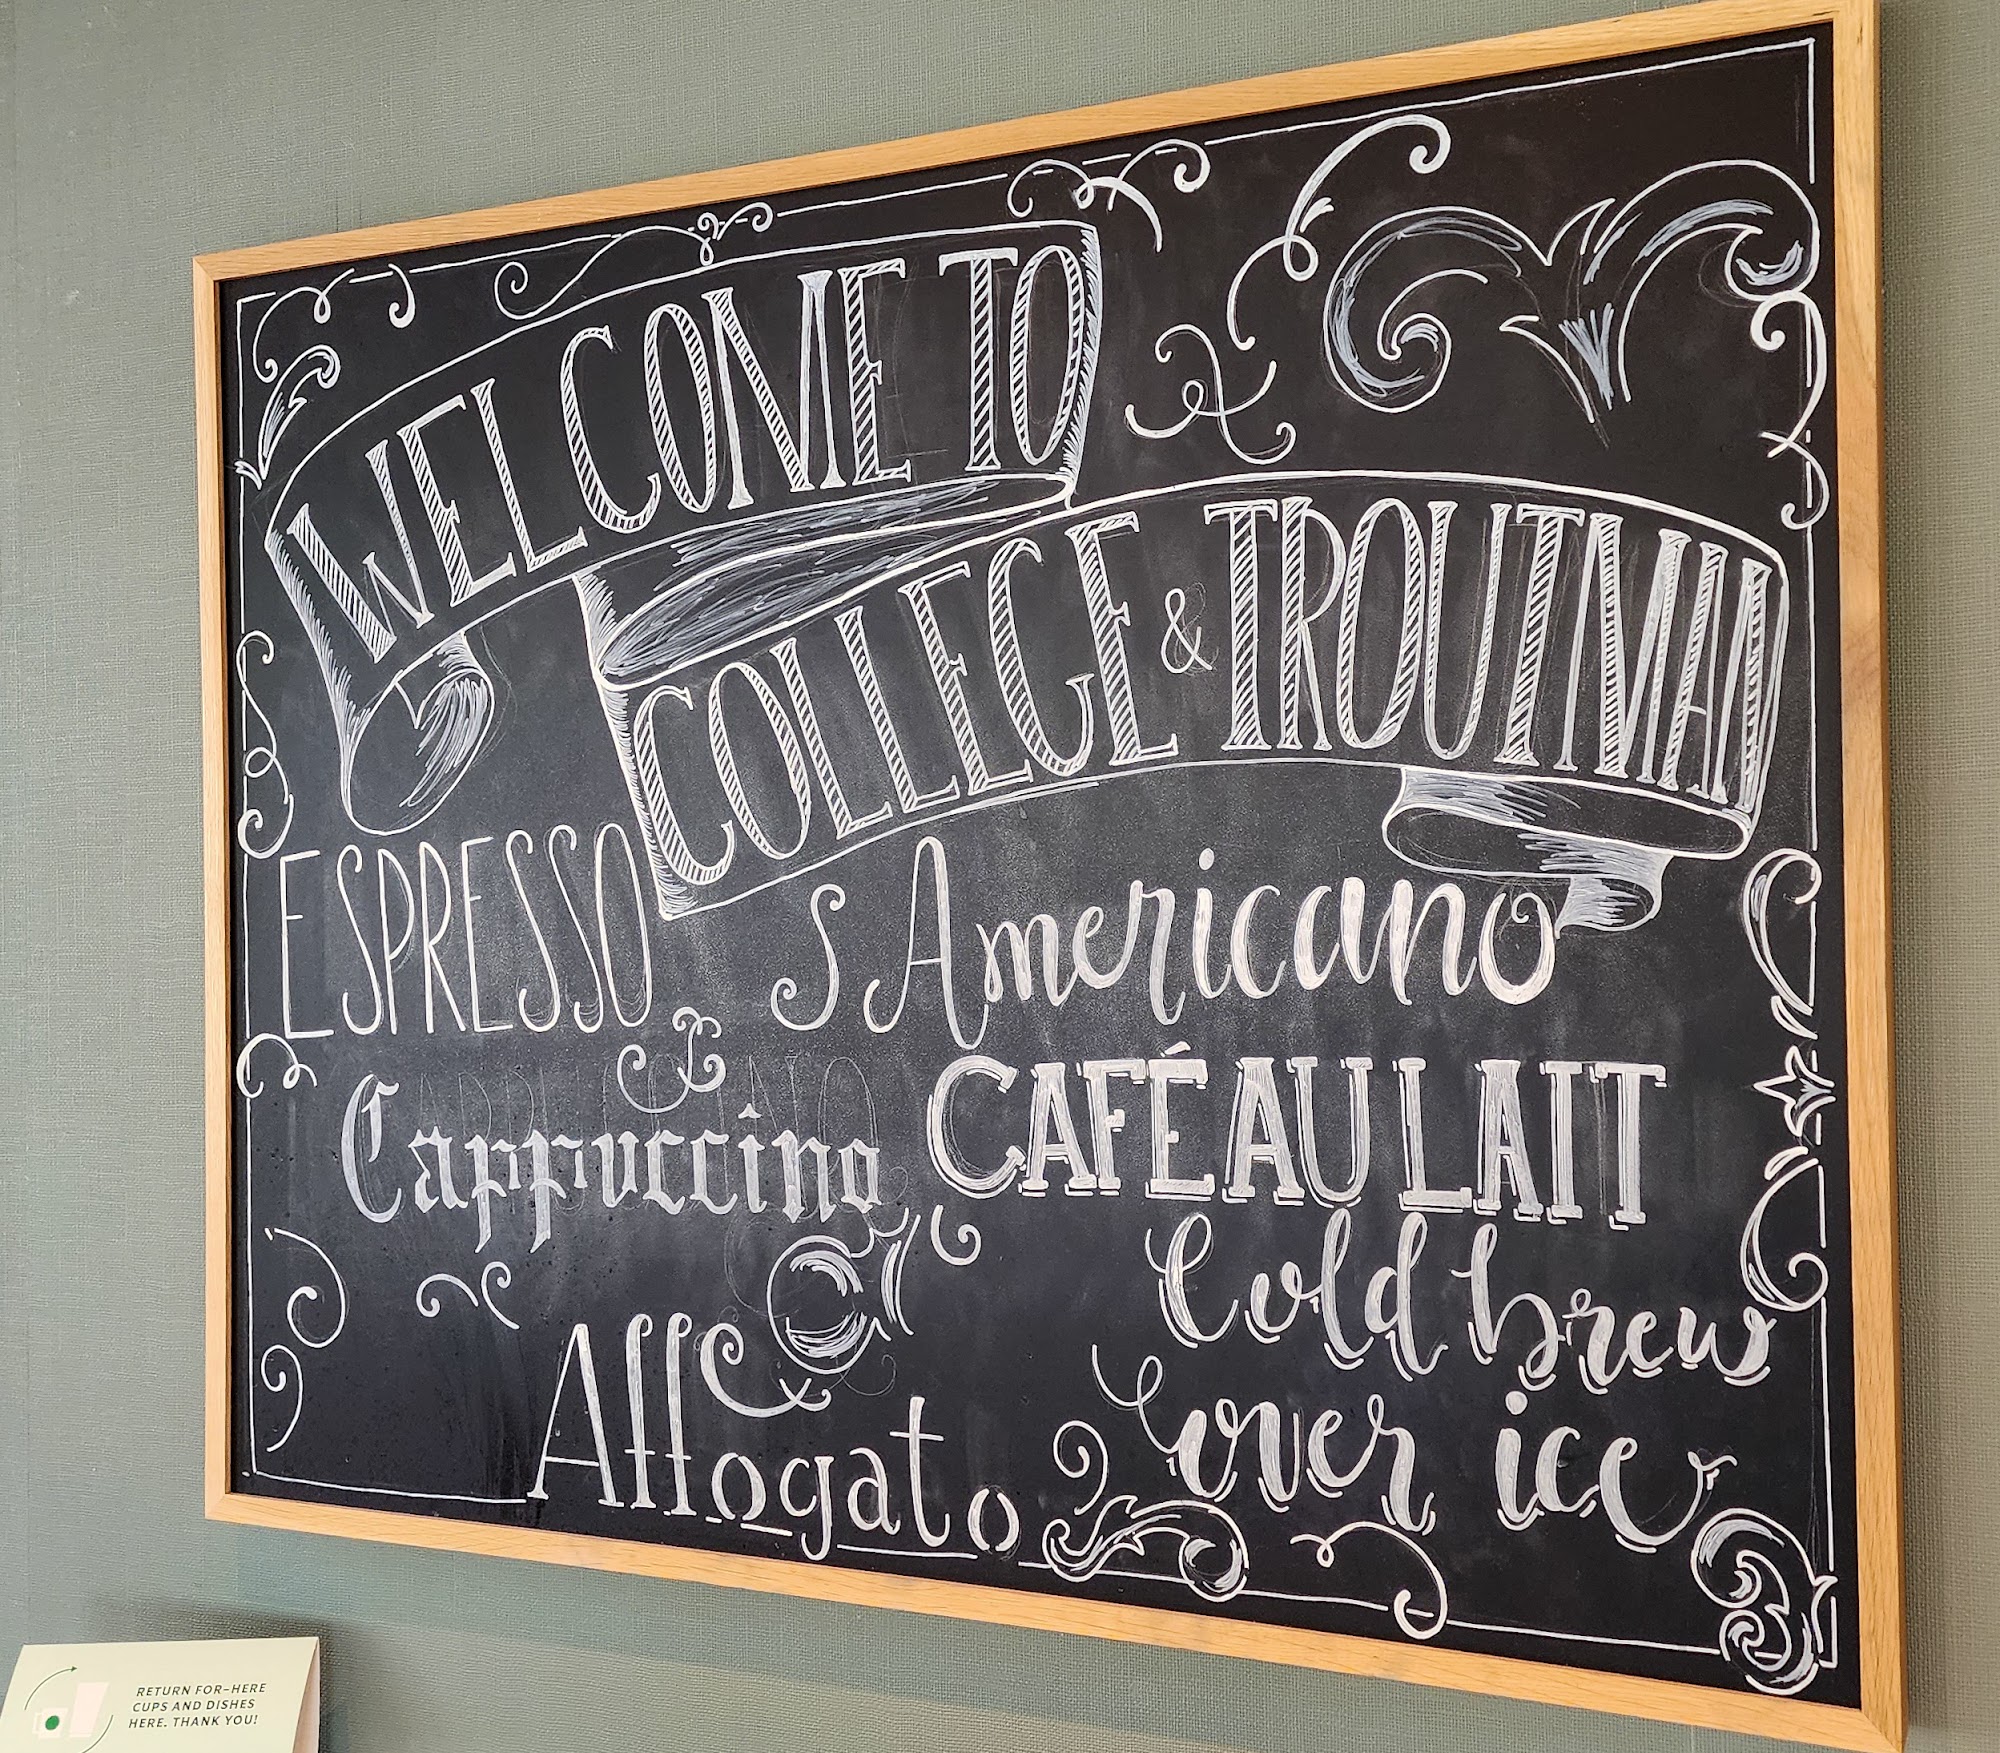 WELCOME TO
COLLEGE & TROUTMAN
ESPRESSO
Americano
Cappuccino
CAFÉ AU LAIT
Affogato
Cold brew
over ice
RETURN FOR-HERE
CUPS AND DISHES
HERE. THANK YOU!